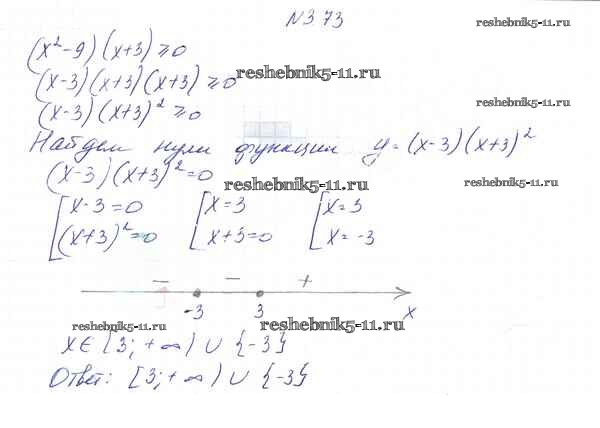 N373
reshebnik5-11.ru
(x²-9)(x+3)≥0
(x-3)(x+3)(x+3)≥0
reshebnik5-11.ru
(x-3)(x+3)²≥0
reshebnik5-11.ru
Найдем нули функции y=(x-3)(x+3)²
(x-3)(x+3)²=0
reshebnik5-11.ru
reshebnik5-11.ru
[x-3=0 [x=3 [x=3
(x+3)²=0 x+3=0 x=-3
- - +
-3 3 x
reshebnik5-11.ru
reshebnik5-11.ru
x∈[3;+∞)∪{-3}
Ответ: [3;+∞)∪{-3}